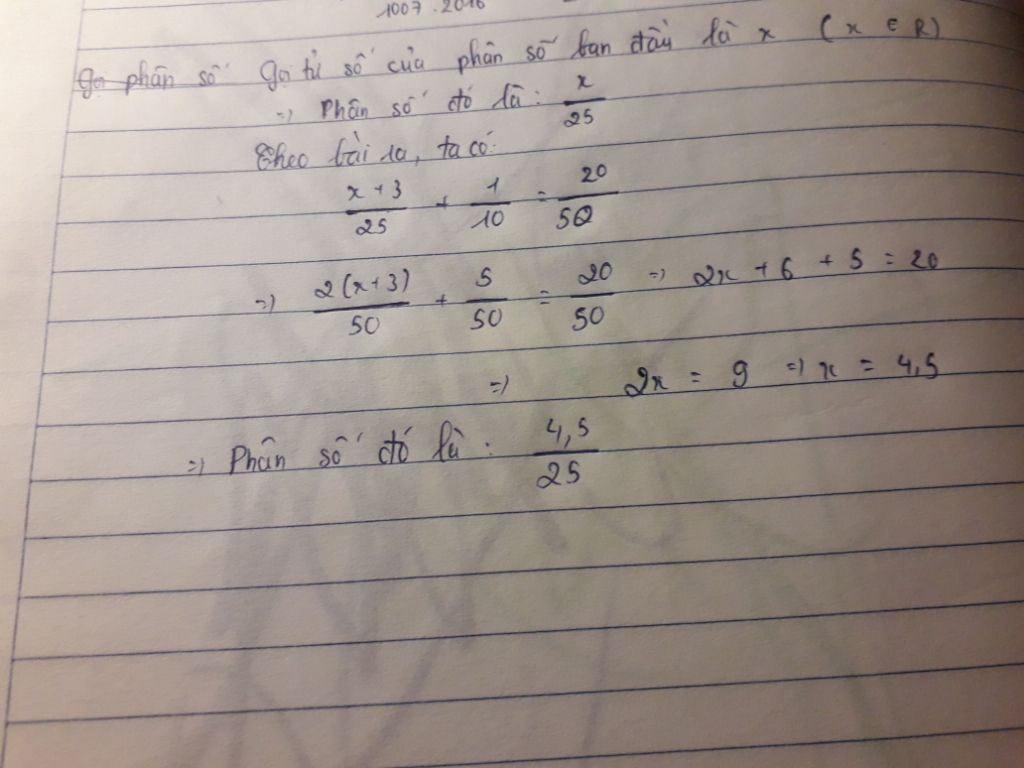 1007.2016
Gọi phân số Gọi tử số của phân số ban đầu là x (x ∈ R)
=> Phân số đó là: x/25
Theo bài ra, ta có:
(x + 3)/25 + 1/10 = 20/50
=> 2(x+3)/50 + 5/50 = 20/50 => 2x + 6 + 5 = 20
=> 2x = 9 => x = 4,5
=> Phân số đó là: 4,5/25